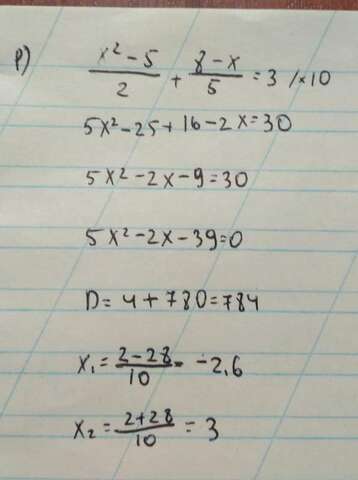 P)
(x² - 5)/2 + (8 - x)/5 = 3 /×10
5x² - 25 + 16 - 2x = 30
5x² - 2x - 9 = 30
5x² - 2x - 39 = 0
D = 4 + 780 = 784
x₁ = (2 - 28)/10 = -2,6
x₂ = (2 + 28)/10 = 3